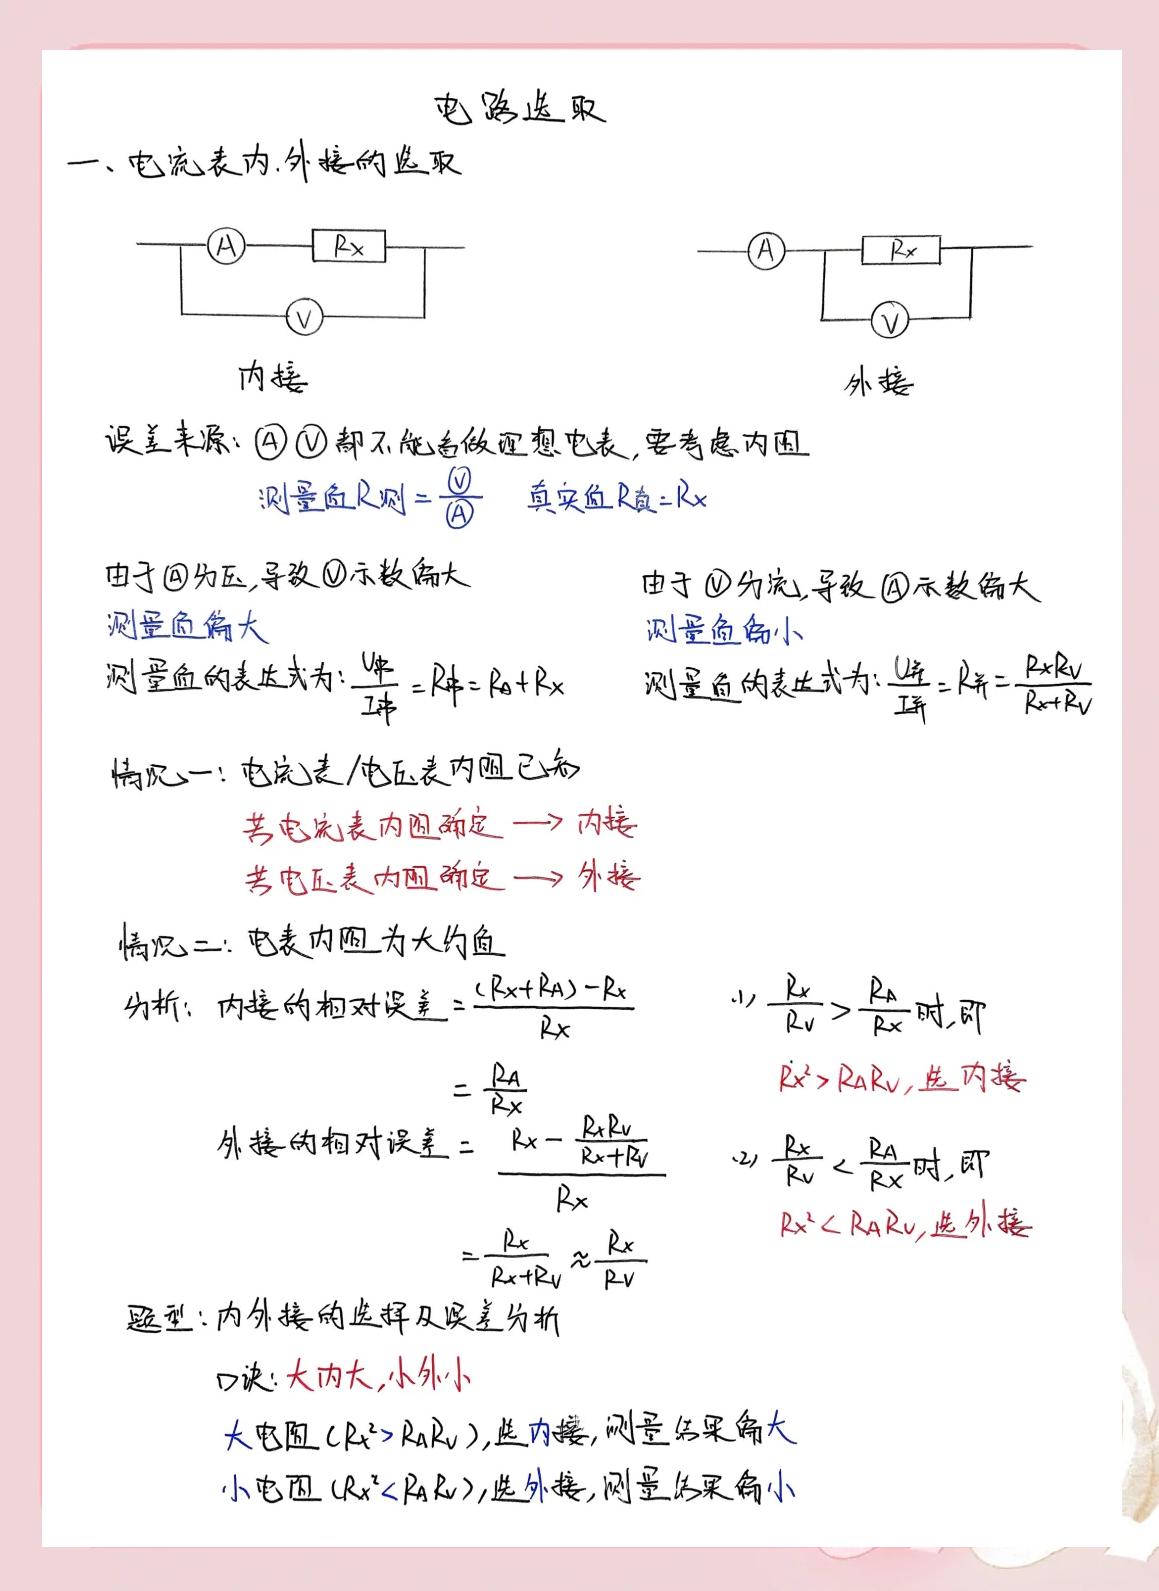 电路选取
一、电流表内.外接的选取
A Rx V
A Rx V
内接
外接
误差来源: Ⓐ Ⓥ 都不能看做理想电表,要考虑内阻
测量值R测=Ⓥ/Ⓐ 真实值R真=Rx
由于Ⓐ分压,导致Ⓥ示数偏大
测量值偏大
测量值的表达式为: U串/I串=R串=RA+Rx
由于Ⓥ分流,导致Ⓐ示数偏大
测量值偏小
测量值的表达式为: U并/I并=R并=RxRv/(Rx+Rv)
情况一: 电流表/电压表内阻已知
若电流表内阻确定 → 内接
若电压表内阻确定 → 外接
情况二: 电表内阻为大约值
分析: 内接的相对误差=((Rx+RA)-Rx)/Rx
=RA/Rx
外接的相对误差=(Rx-RxRv/(Rx+Rv))/Rx
=Rx/(Rx+Rv)≈Rx/Rv
(1) Rx/Rv>RA/Rx时,即
Rx²>RARv,选内接
(2) Rx/Rv<RA/Rx时,即
Rx²<RARv,选外接
题型: 内外接的选择及误差分析
口诀: 大内大,小外小
大电阻(Rx²>RARv),选内接,测量结果偏大
小电阻(Rx²<RARv),选外接,测量结果偏小